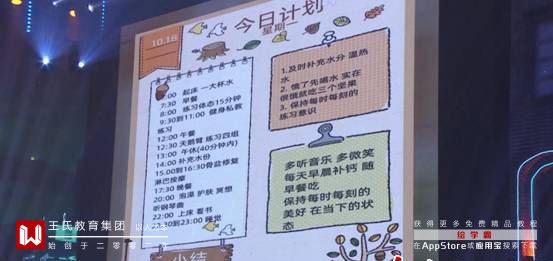 今日计划
星期一
10.18
7:00 起床 一大杯水
7:30 早餐
8:00 练习体态15分钟
9:30到11:00 健身私教
练习
12:00 午餐
12:30 天鹅臂 练习四组
13:00 午休(40分钟内)
14:00 补充水份
15:00到16:30骨盆修复
淋巴按摩
17:30 晚餐
20:00 泡澡 护肤 冥想
听钢琴曲
22:00 上床 看书
到23:00 睡觉
小结
1.及时补充水分 温热
水
2. 饿了先喝水 实在
很饿就吃三个坚果
3. 保持每时每刻的
练习意识
多听音乐 多微笑
每天早晨补钙 随
早餐吃
保持每时每刻的
美好 在当下的状
态
王氏教育集团
始创于二零零二年
获得更多免费精品教程
绘学霸
在AppStore或应用宝搜索下载